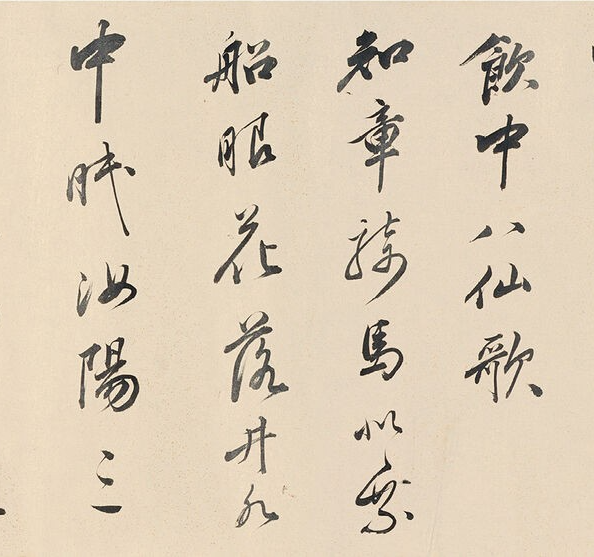 飲中八仙歌
知章騎馬似乘
船眼花落井水
中眠汝陽三